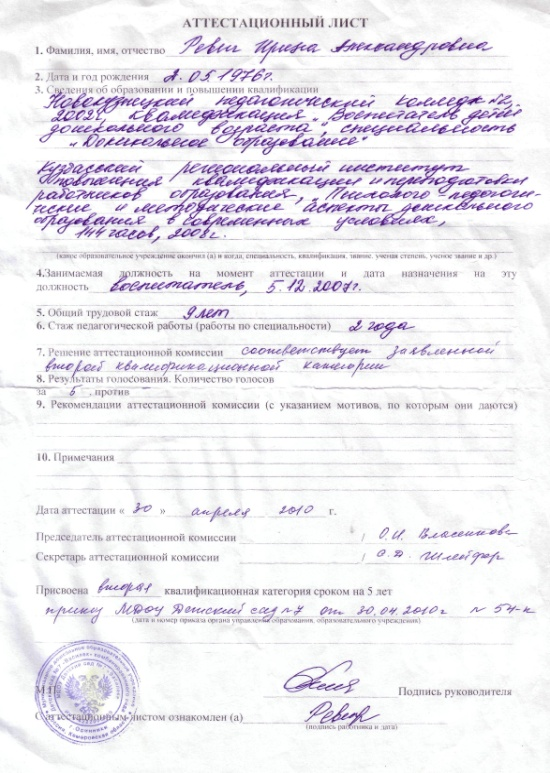 АТТЕСТАЦИОННЫЙ ЛИСТ
1. Фамилия, имя, отчество Ревш Ирина Александровна
2. Дата и год рождения 2.05.1976г.
3. Сведения об образовании и повышении квалификации
Новокузнецкий педагогический колледж №2,
2002г, квалификация „Воспитатель детей
дошкольного возраста", специальность
„Дошкольное образование"
Кузбасский региональный институт
повышения квалификации и переподготовки
работников образования, Психолого педагоги-
ческие и методические аспекты дошкольного
образования в современных условиях,
144 часов, 2008г.
(какое образовательное учреждение окончил (а) и когда, специальность, квалификация, звание, ученая степень, ученое звание и др.)
4.Занимаемая должность на момент аттестации и дата назначения на эту
должность воспитатель, 5.12.2007г.
5. Общий трудовой стаж 9 лет
6. Стаж педагогической работы (работы по специальности) 2 года
7. Решение аттестационной комиссии соответствует заявленной
второй квалификационной категории
8. Результаты голосования. Количество голосов
за 5, против
9. Рекомендации аттестационной комиссии (с указанием мотивов, по которым они даются)
10. Примечания
Дата аттестации « 30 » апреля 2010 г.
Председатель аттестационной комиссии / О.И.
Секретарь аттестационной комиссии / Шлейфер
Присвоена вторая квалификационная категория сроком на 5 лет
приказ МДОУ Детский сад №7 от 30.04.2010г № 54-к
(дата и номер приказа органа управления образования, образовательного учреждения)
М.П. Подпись руководителя
С аттестационным листом ознакомлен (а)
(подпись работника и дата)